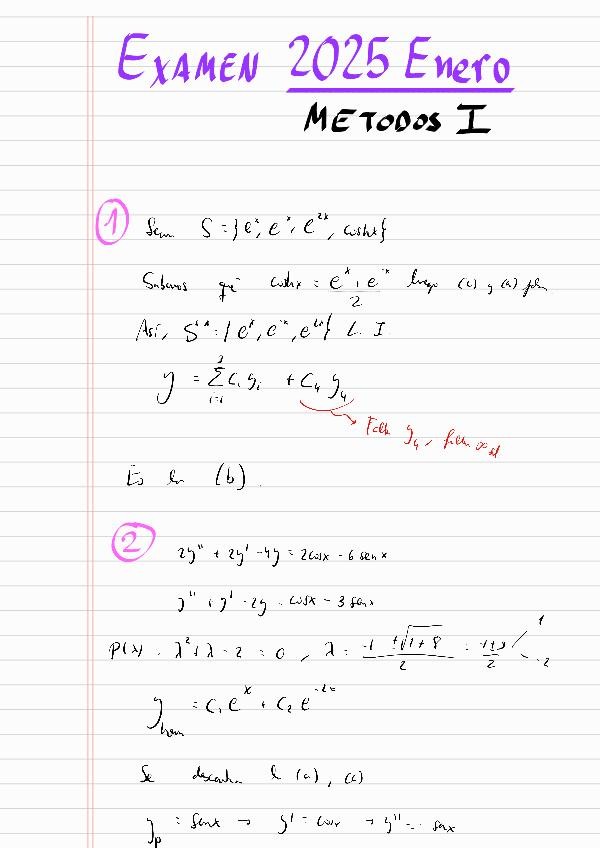 EXAMEN 2025 Enero
METODOS I
1 Sean S = {eˣ, e⁻ˣ, e²ˣ, coshx}
Sabemos que coshx = (eˣ + e⁻ˣ)/2 luego (c) y (a)
Así, S* = {eˣ, e⁻ˣ, e²ˣ} L.I.
y = Σ_{i=1}^{3} Cᵢ yᵢ + C₄ y₄
→ Falta y₄, falta
Es la (b).
2 2y'' + 2y' - 4y = 2cosx - 6senx
y'' + y' - 2y = cosx - 3senx
P(λ) = λ² + λ - 2 = 0, λ = (-1 ± √(1+8))/2 = (-1±3)/2 1 -2
y_hom = C₁eˣ + C₂e⁻²ˣ
Se descarta la (a), (c)
y_p = senx → y' = cosx → y'' = -senx